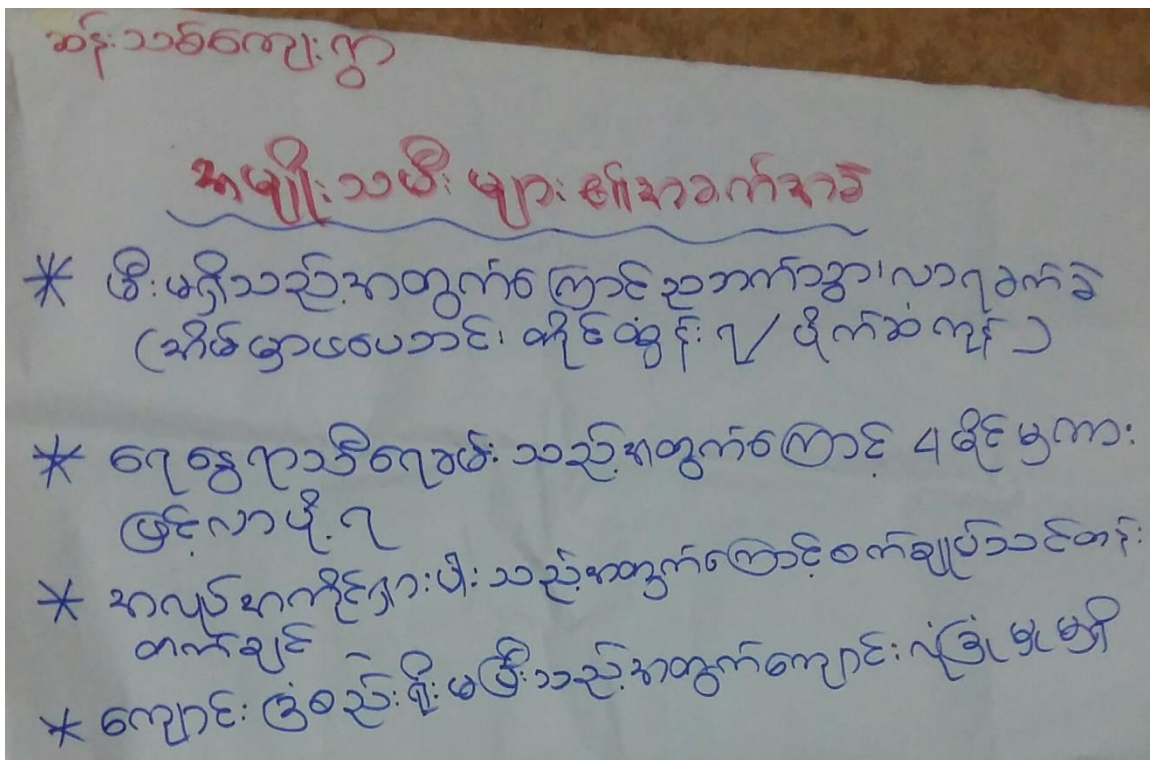 ဆန်းသစ်ကျေးရွာ
အမျိုးသမီးများ၏အခက်အခဲ
* မီးမရှိသည့်အတွက်ကြောင့်ညဘက်သွားလာရခက်ခဲ
(အိမ်မှာဖယောင်းတိုင်ထွန်းရ/ ပိုက်ဆံကုန်)
* ရေနွေရာသီရေခမ်းသည့်အတွက်ကြောင့် ၄မိုင်မှကား
ဖြင့်လာပို့ရ
* အလုပ်အကိုင်ရှားပါးသည့်အတွက်ကြောင့်စက်ချုပ်သင်တန်း
တက်ချင်
* ကျောင်းခြံစည်းရိုးမပြီးသည့်အတွက်ကျောင်းလုံခြုံမှုမရှိ